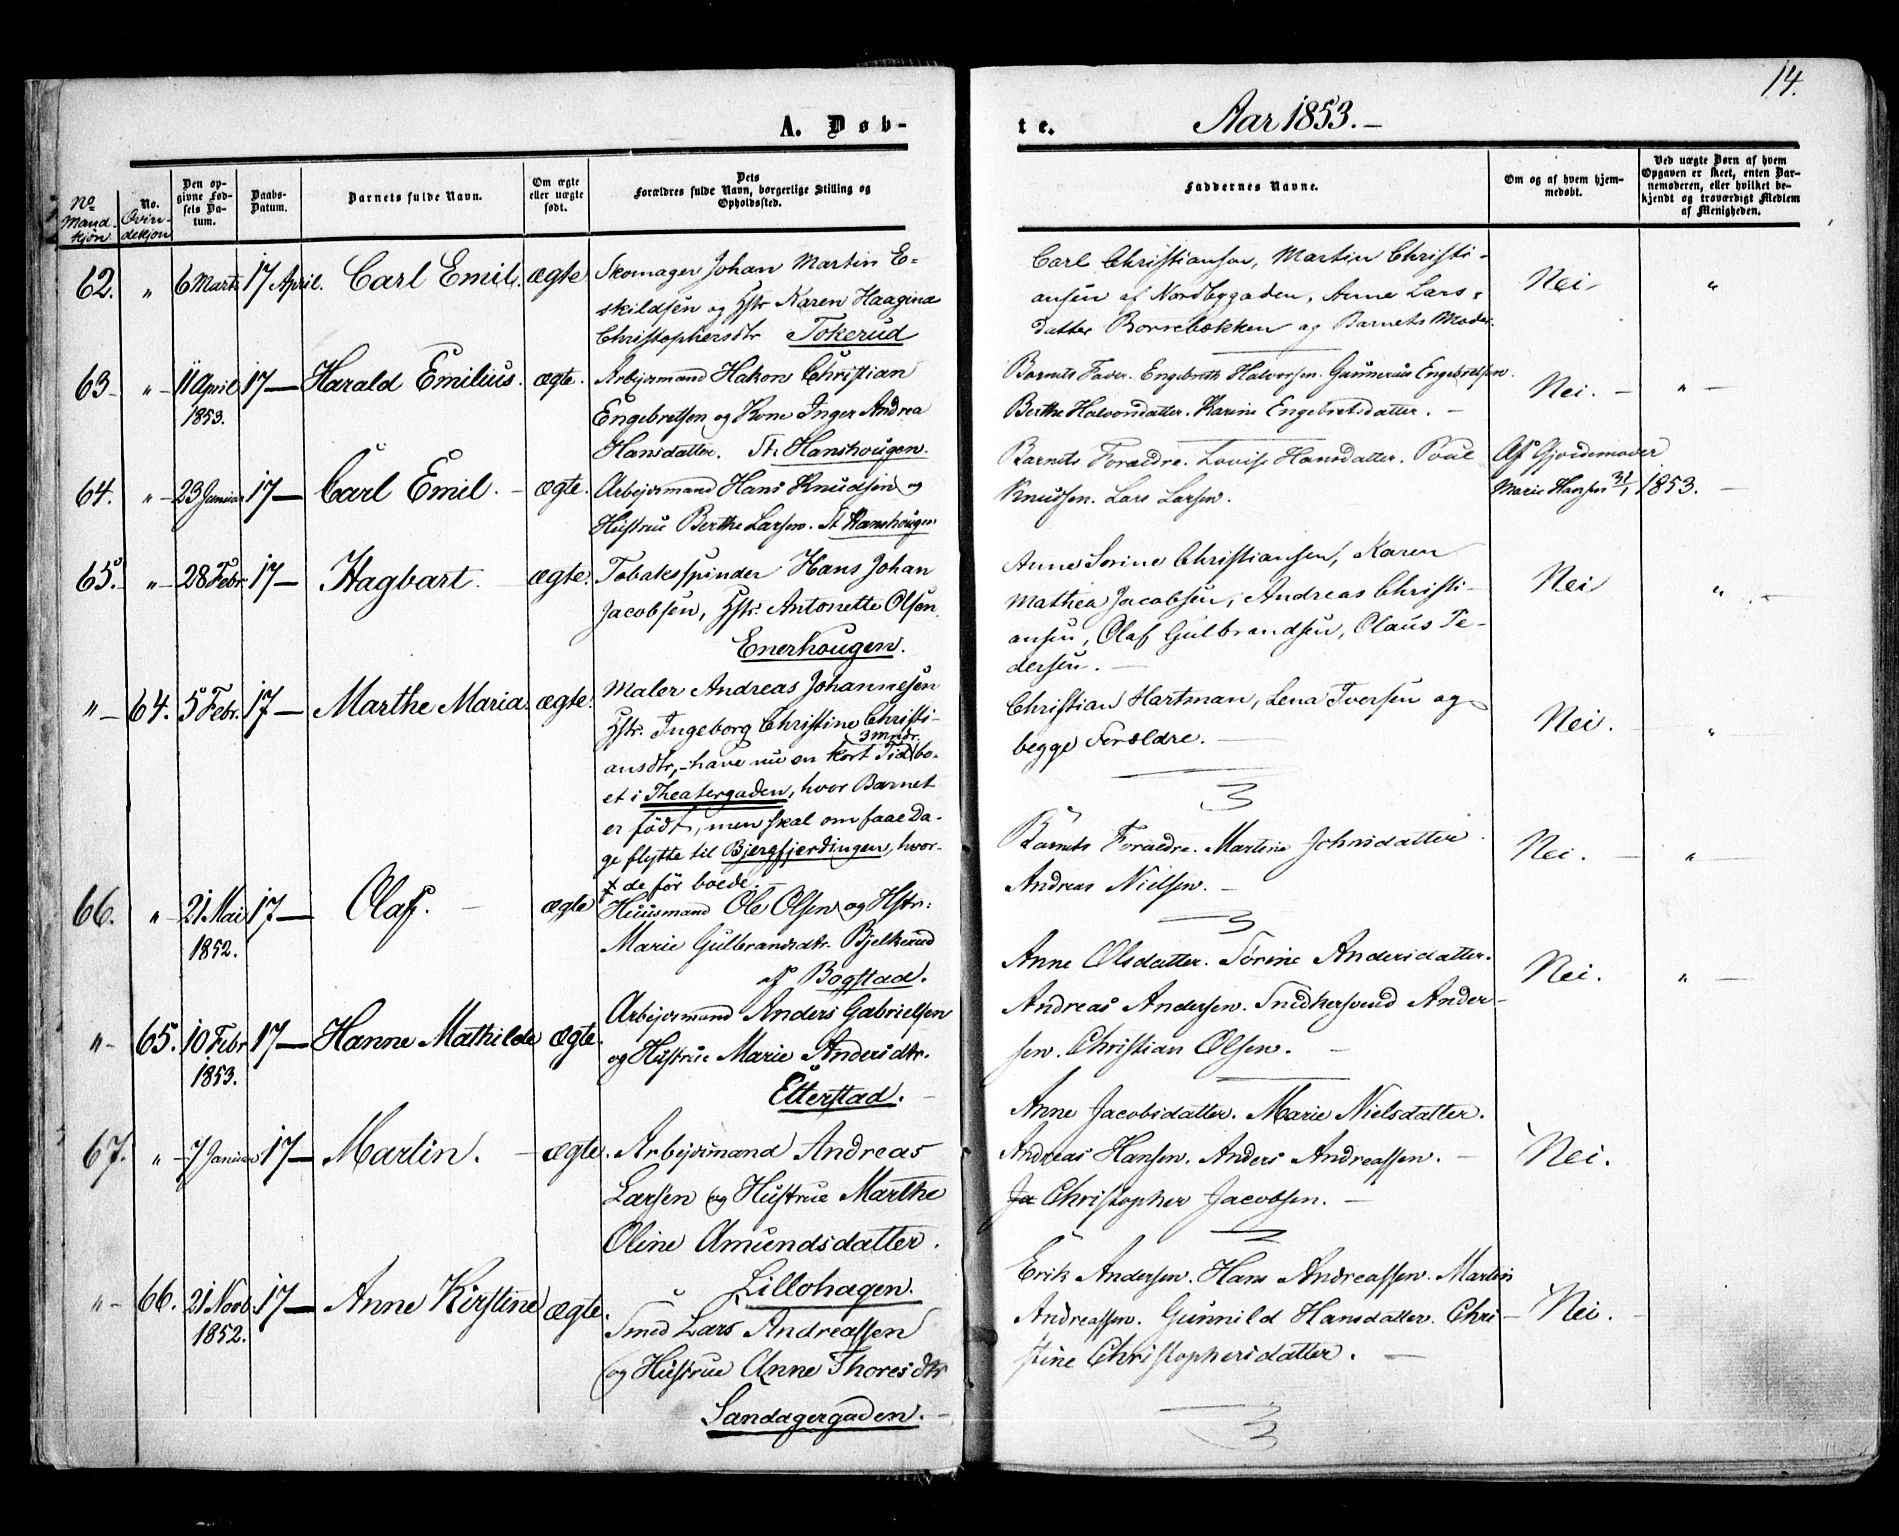 14.
A. Døb-
te.
Aar 1853. —
No Mandkjøn.
No. Qvindekjøn
Den opgivne Fødsels Datum.
Daabs-Datum.
Barnets fulde Navn.
Om ægte eller uægte født.
Dets Forældres fulde Navn, borgerlige Stilling og Opholdssted.
Faddernes Navne.
Om og af hvem hjemmedøbt.
Ved uægte Børn af hvem Opgaven er skeet, enten Barnemoderen, eller hvilket bekjendt og troværdigt Medlem af Menigheden.
62. " 6 Marts 17 April. Carl Emil. ægte. Skomager Johan Martin E-
skildsen og Hstr Karen Haagina
Christophersdtr Tokerud
Carl Christiansen, Martin Christi-
ansen af Nordbygaden, Anne Lars-
datter Borrebækken og Barnets Moder.
Nei "
63 - " - 11 April 17 — Harald Emilius. ægte. Arbejdsmand Hakon Christian
1853.
Engebretsen og Kone Inger Andrea
Hansdatter. St. Hanshougen.
Barnets Fader. Engebreth Halvorsen. Gunnerius Engebretsen.
Berthe Halvorsdatter. Karine Engebretsdatter. —
Nei. — " —
64. " - 23 Januar 17 — Carl Emil. — ægte. Arbejdsmand Hans Knudsen og
Hustrue Berthe Larsen. St Hanshougen
Barnets Forældre. Lovise Hansdatter. Poul
Knudsen. Lars Larsen.
Af Gjordemoder
Marie Hansen 31/1 1853. —
65. " - 28 Febr. 17 — Hagbart. ægte. Tobaksspinder Hans Johan
Jacobsen, Hstr. Antonette Olsen
Enerhougen.
Anne Sorine Christiansen, Karen
Mathea Jacobsen, Andreas Christi-
ansen, Olaf Gulbrandsen, Olaus Pe-
dersen. —
Nei "
" - 64. 5 Febr. 17 — Marthe Maria. ægte. Maler Andreas Johannesen
Hstr. Ingeborg Christine Christi-
3 Mndr.
ansdtr, - have nu en kort Tid bo-
et i Theatergaden, hvor Barnet
er født, men skal om faae Da-
ge flytte til Bjergfjerdingen, hvor-
de før boede. —
Christian Hartman, Lena Iversen og
begge Forældre. —
Nei. "
66. " - 21 Mai 17 — Olaf. — ægte Huusmand Ole Olsen og Hstr:
1852.
Marie Gulbrandsdtr. Bjelkerud
af Bogstad.
Barnets Forældre. Martine Johnsdatter
Andreas Nielsen. —
Nei. — " —
" - 65. 10 Febr 17 — Hanne Mathilde ægte. Arbejdsmand Anders Gabrielsen
1853.
og Hustrue Marie Andersdtr.
Etterstad. —
Anne Olsdatter. Sørine Andersdatter.
Andreas Andersen. Snedkersvend Ander-
sen. Christian Olsen. —
Nei. " —
67. " - 7 Januar 17 — Martin. — ægte. Arbejdsmand Andreas
Larsen og Hustrue Marthe
Oline Amundsdatter.
Lillohagen.
Anne Jacobsdatter. Marie Nielsdatter.
Andreas Hansen. Anders Andreassen. —
Ja Christopher Jacobsen. —
Nei.
" - 66. 21 Novb. 17 — Anne Kirstine ægte. Smed Lars Andreassen
1852.
og Hustrue Anne Thoresdtr
Sandagergaden. —
Erik Andersen. Hans Andreassen. Martin
Andreassen. Gunnild Hansdatter. Chri-
stine Christophersdatter. —
Nei. —